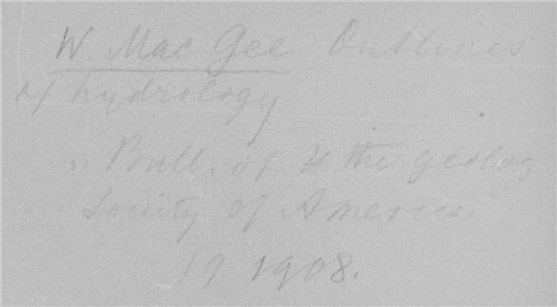 W. Mac Gee Outlines
of hydrology
„ Bull. of the geolog
Society of America"
19 1908.